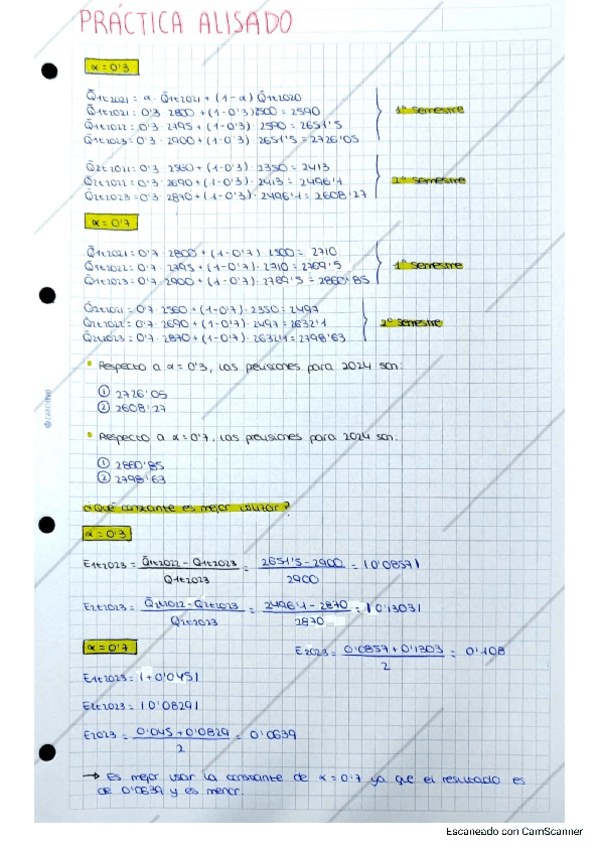 PRÁCTICA ALISADO
α = 0'3
Q̄1t2021 = α · Q1t2021 + (1-α) Q̄1t2020
Q̄1t2021 = 0'3 · 2800 + (1-0'3) 2500 = 2590
Q̄1t2022 = 0'3 · 2795 + (1-0'3) · 2590 = 2651'5
Q̄1t2023 = 0'3 · 2900 + (1-0'3) 2651'5 = 2726'05
1º semestre
Q̄2t2021 = 0'3 · 2560 + (1-0'3) 2350 = 2413
Q̄2t2022 = 0'3 · 2690 + (1-0'3) · 2413 = 2496'1
Q̄2t2023 = 0'3 · 2870 + (1-0'3) · 2496'1 = 2608'27
2º semestre
α = 0'7
Q̄1t2021 = 0'7 · 2800 + (1-0'7) · 2500 = 2710
Q̄1t2022 = 0'7 · 2795 + (1-0'7) · 2710 = 2769'5
Q̄1t2023 = 0'7 · 2900 + (1-0'7) · 2769'5 = 2860'85
1º semestre
Q̄2t2021 = 0'7 · 2560 + (1-0'7) · 2350 = 2497
Q̄2t2022 = 0'7 · 2690 + (1-0'7) · 2497 = 2632'1
Q̄2t2023 = 0'7 · 2870 + (1-0'7) · 2632'1 = 2798'63
2º semestre
• Respecto a α = 0'3, las previsiones para 2024 son:
① 2726'05
② 2608'27
• Respecto a α = 0'7, las previsiones para 2024 son:
① 2860'85
② 2798'63
¿Qué constante es mejor utilizar?
α = 0'3
E1t2023 = Q̄1t2022 - Q1t2023 / Q1t2023 = 2651'5 - 2900 / 2900 = |0'0857|
E2t2023 = Q̄2t2022 - Q2t2023 / Q2t2023 = 2496'1 - 2870 / 2870 = |0'1303|
E2023 = 0'0857 + 0'1303 / 2 = 0'108
α = 0'7
E1t2023 = |+0'045|
E2t2023 = |0'0829|
E2023 = 0'045 + 0'0829 / 2 = 0'0639
→ Es mejor usar la constante de α = 0'7 ya que el resultado es
de 0'0639 y es menor.
Escaneado con CamScanner